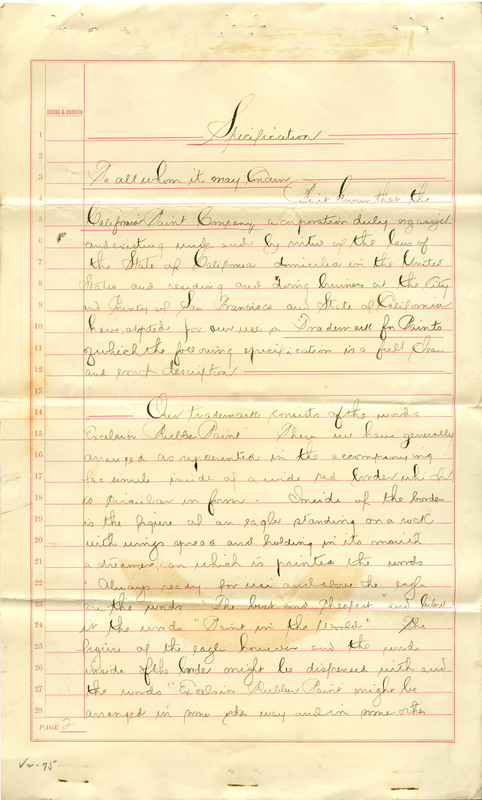 Specification
To all whom it may Concern
Be it known that the
California Paint Company a corporation duly organized
and existing under and by virtue of the laws of
the State of California domiciled in the United
States and residing and doing business at the City
and County of San Francisco and State of California
have adopted for our use a Trademark for Paints
of which the following specification is a full clear
and exact description
Our trademark consists of the words
Excelsior Rubber Paint" These we have generally
arranged as represented in the accompanying
fac simile inside of a wide red border which
is circular in form. Inside of the border
is the figure of an eagle standing on a rock
with wings spread and holding in its mouth
a streamer on which is printed the words
"Always ready for use and above the eagle
are the words "The best and Cheapest" and below
it the words "Paint in the World." The
figure of the eagle however and the words
inside of the border might be dispensed with and
the words "Excelsior Rubber Paint might be
arranged in some other way and in some other
1
2
3
4
5
6
7
8
9
10
11
12
13
14
15
16
17
18
19
20
21
22
23
24
25
26
27
28
PAGE 2